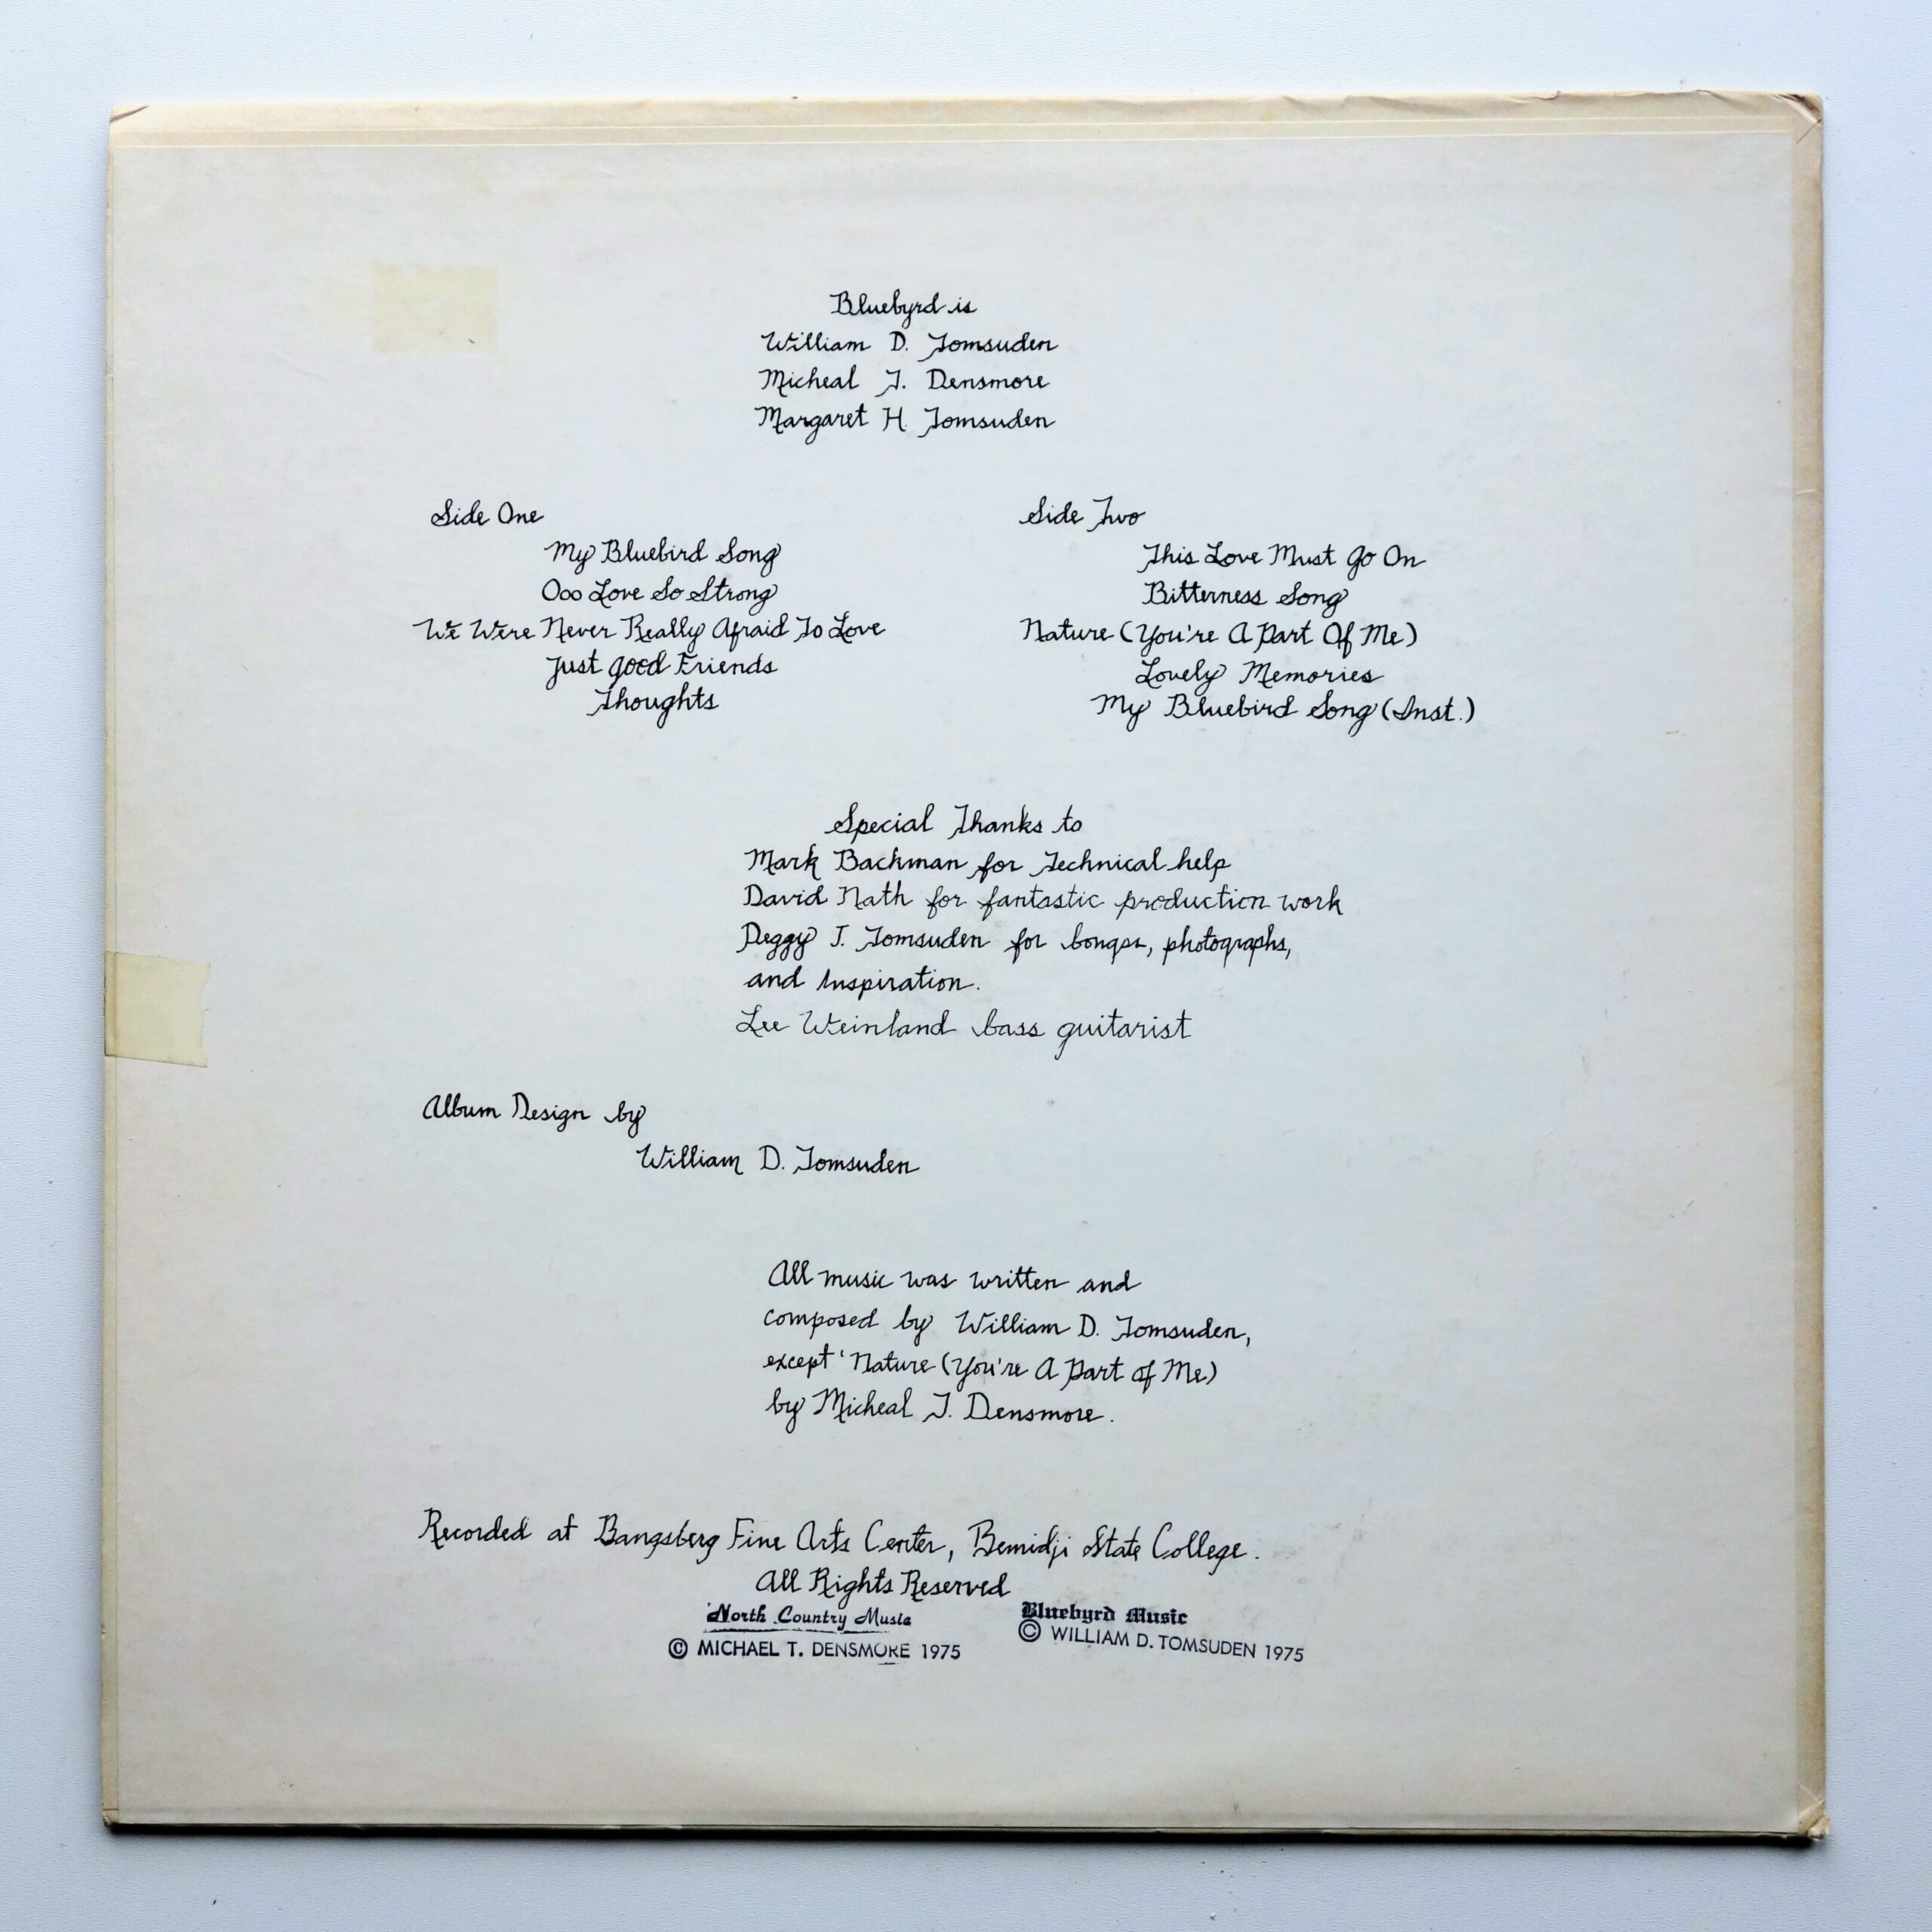 Bluebyrd is
William D. Tomsuden
Micheal T. Densmore
Margaret H. Tomsuden
Side One
My Bluebird Song
Ooo Love So Strong
We Were Never Really Afraid To Love
Just Good Friends
Thoughts
Side Two
This Love Must Go On
Bitterness Song
Nature (You're A Part Of Me)
Lovely Memories
My Bluebird Song (Inst.)
Special Thanks to
Mark Bachman for Technical help
David Nath for fantastic production work
Peggy J. Tomsuden for bongos, photographs,
and Inspiration.
Lee Weinland bass guitarist
Album Design by
William D. Tomsuden
All music was written and
composed by William D. Tomsuden,
except 'Nature (You're A Part of Me)
by Micheal T. Densmore.
Recorded at Bangsberg Fine Arts Center, Bemidji State College.
All Rights Reserved
North Country Music
© MICHAEL T. DENSMORE 1975
Bluebyrd Music
© WILLIAM D. TOMSUDEN 1975